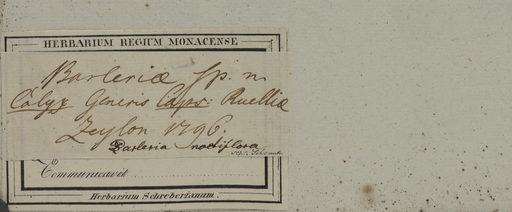 HERBARIUM REGIUM MONACENSE
Barleriæ sp. n.
Calyx Generis Caps: Ruelliæ
Zeylon 1796.
Barleria noctiflora
Communicavit
Herbarium Schreberianum.